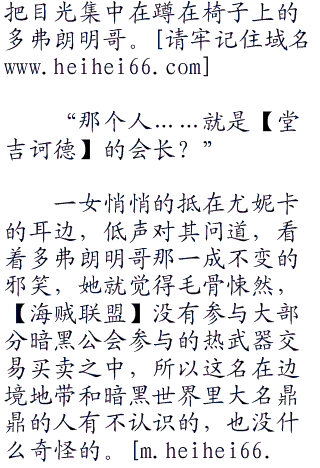 把目光集中在蹲在椅子上的
多弗朗明哥。[请牢记住域名
www.heihei66.com]
“那个人……就是【堂
吉诃德】的会长？”
一女悄悄的抵在尤妮卡
的耳边，低声对其问道，看
着多弗朗明哥那一成不变的
邪笑，她就觉得毛骨悚然，
【海贼联盟】没有参与大部
分暗黑公会参与的热武器交
易买卖之中，所以这名在边
境地带和暗黑世界里大名鼎
鼎的人有不认识的，也没什
么奇怪的。[m.heihei66.